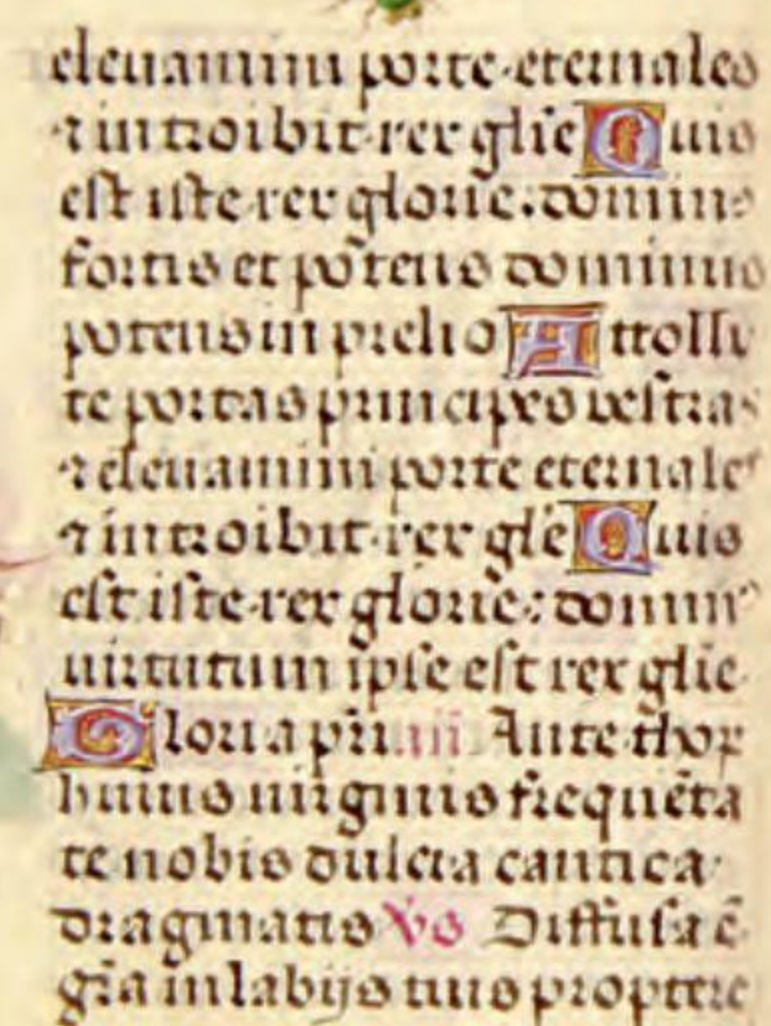 eleuamini porte eternales
⁊ introibit rex gl̃ie Quis
est iste rex glorie: domin⁹
fortis et põtens dominus
potens in prelio Attolli
te portas principes vestras
⁊ eleuamini porte eternales
⁊ introibit rex gl̃e Quis
est iste rex glorie: domin⁹
uirtutum ipse est rex gl̃ie
Gloria pr̃i. iii Ante thoꝝ
huius uirginis frequẽta
te nobis dulcia cantica
dragmatis Vs Diffusa ẽ
gr̃a in labijs tuis proptere